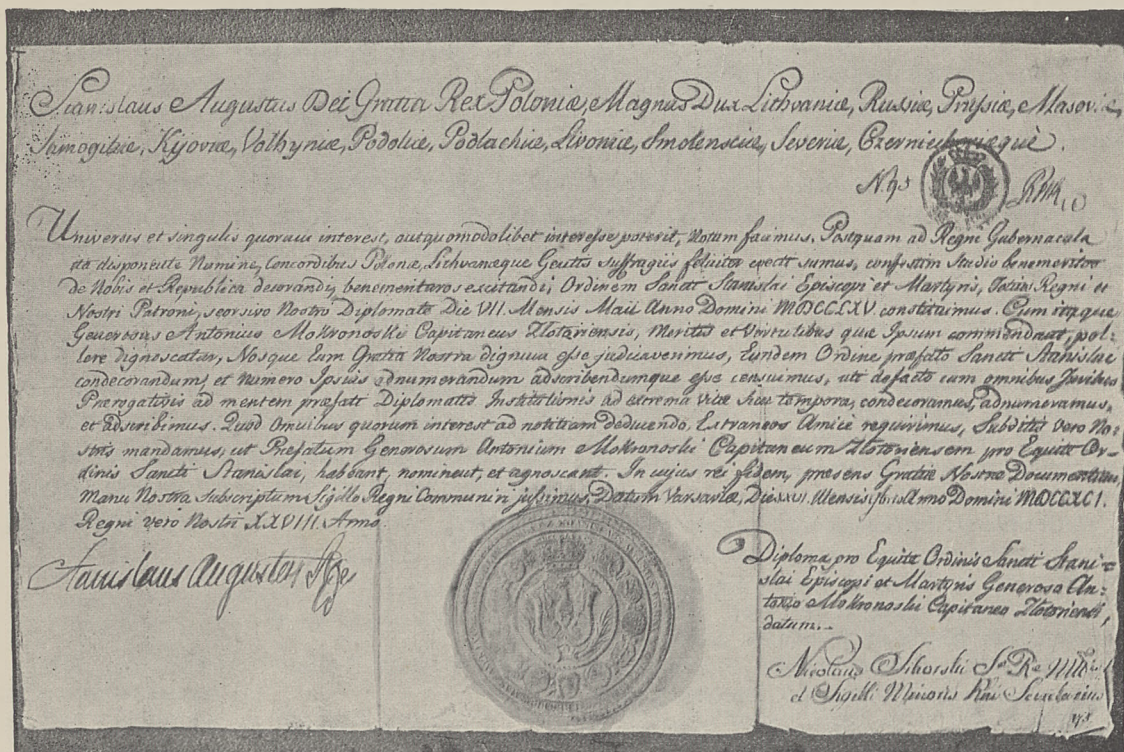 Stanislaus Augustus Dei Gratia Rex Poloniæ, Magnus Dux Lithvaniæ, Russiæ, Prussiæ, Masoviæ,
Samogitiæ, Kijoviæ, Volhyniæ, Podoliæ, Podlachiæ, Livoniæ, Smolensciæ, Severiæ, Czerniechoviæquè.
Universis et singulis quorum interest, aut quomodolibet interesse poterit, notum facimus, Postquam ad Regni Gubernacula
ita disponente Numine, Concordibus Polonæ, Lithvanæque Gentis suffragiis feliciter evecti sumus, confestim studio benemeritos
de Nobis et Republica decorandi, benemerituros excitandi, Ordinem Sancti Stanislai Episcopi et Martyris, Totius Regni et
Nostri Patroni, seorsivo Nostro Diplomate Die VII Mensis Maii Anno Domini MDCCLXV constituimus. Cum itaque
Generosus Antonius Mokronoski Capitaneus Zlotoriensis, Meritis et Virtutibus quæ Ipsum commendant, pol-
lere dignoscatur, Nosque Eum Gratia Nostra dignum esse judicaverimus, Eundem Ordine præfato Sancti Stanislai
condecorandum, et numero Ipsius adnumerandum adscribendumque esse censuimus, uti de facto cum omnibus Juribus
Prærogativis ad mentem præfati Diplomatis Institutionis ad extrema vitæ suæ tempora, condecoramus, adnumeramus,
et adscribimus. Quod Omnibus quorum interest ad notitiam deducendo, Extraneos Amicè requirimus, Subditis vero No-
stris mandamus, ut Præfatum Generosum Antonium Mokronoski Capitaneum Zlotoriensem pro Equite Or-
dinis Sancti Stanislai, habeant, nominent, et agnoscant. In cujus rei fidem, præsens Gratiæ Nostræ Documentum
Manu Nostra Subscriptum Sigillo Regni Communiri jussimus, Datum Varsaviæ, Die XXVI. Mensis 7bris Anno Domini MDCCXCI.
Regni vero Nostri XXVIII. Anno.
Stanislaus Augustus Rex
Diploma pro Equite Ordinis Sancti Stani-
slai Episcopi et Martyris Generoso An-
tonio Mokronoski Capitaneo Zlotoriensi,
datum.
Nicolaus Siborski
et Sigilli Minoris Secretarius